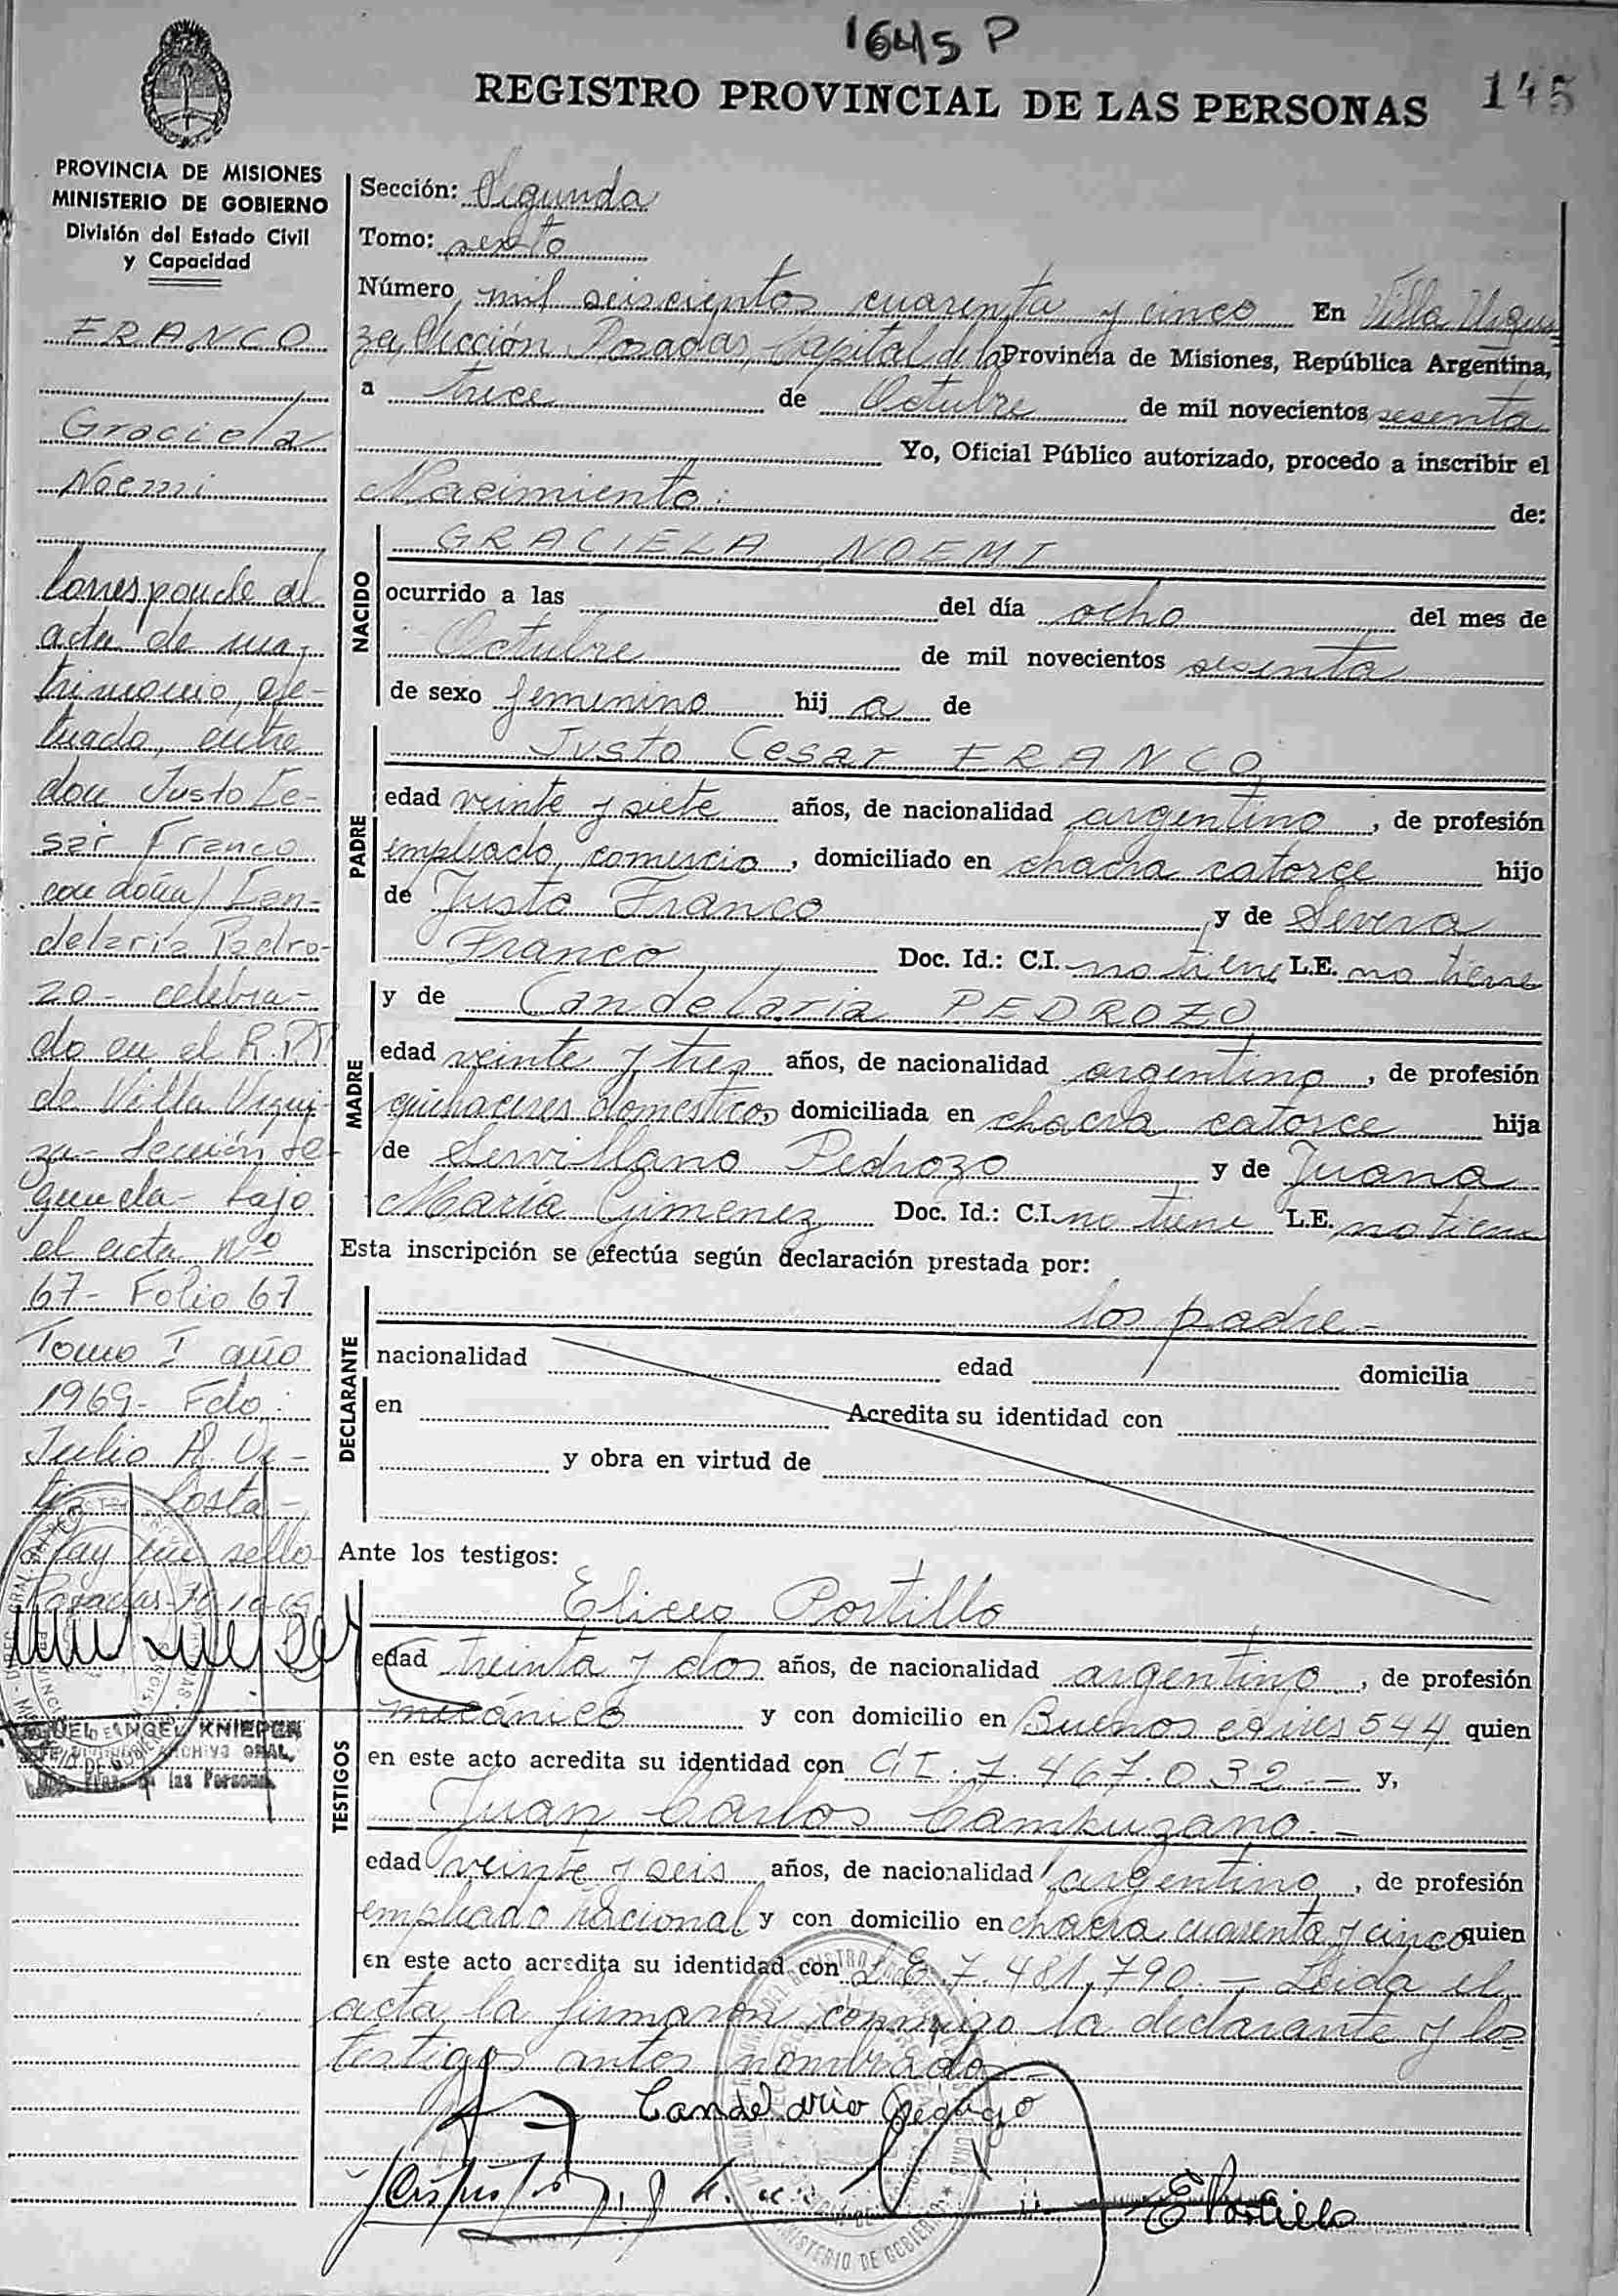 1645 P
REGISTRO PROVINCIAL DE LAS PERSONAS
145
PROVINCIA DE MISIONES
MINISTERIO DE GOBIERNO
División del Estado Civil
y Capacidad
FRANCO
Graciela
Noemi
Corresponde al
acta de ma-
trimonio, efe-
tuado, entre
don Justo Ce-
sar Franco
con doña Can-
delaria Pedro-
zo - celebra-
do en el R.P.P.
de Villa Urqui-
za - Sección Se-
gunda - bajo
el acta nº
67 - Folio 67
Tomo I año
1969 - Fdo:
Julio A. Or-
tiz Costa -
Hay un sello
Posadas
MIGUEL ANGEL KNIEPER
ARCHIVO GRAL.
de las Personas
Sección: Segunda
Tomo: sexto
Número mil seiscientos cuarenta y cinco En Villa Urqui
za, Sección Posadas, Capital de la Provincia de Misiones, República Argentina,
a trece de Octubre de mil novecientos sesenta
Yo, Oficial Público autorizado, procedo a inscribir el
Nacimiento: de:
NACIDO
GRACIELA NOEMI
ocurrido a las del día ocho del mes de
Octubre de mil novecientos sesenta
de sexo femenino hij a de
PADRE
Justo Cesar FRANCO
edad veinte y siete años, de nacionalidad argentino, de profesión
empleado comercio, domiciliado en chacra catorce hijo
de Justo Franco y de Severa
Franco Doc. Id.: C.I. no tiene L.E. no tiene
MADRE
y de Candelaria PEDROZO
edad veinte y tres años, de nacionalidad argentino, de profesión
quehaceres domesticos domiciliada en chacra catorce hija
de Servillano Pedrozo y de Juana
María Gimenez Doc. Id.: C.I. no tiene L.E. no tiene
Esta inscripción se efectúa según declaración prestada por:
DECLARANTE
los padre -
nacionalidad edad domicilia
en Acredita su identidad con
y obra en virtud de
Ante los testigos:
TESTIGOS
Eliceo Portillo
edad treinta y dos años, de nacionalidad argentino, de profesión
mecánico y con domicilio en Buenos aires 544 quien
en este acto acredita su identidad con C I. 7.467.032.- y,
Juan Carlos Campuzano.-
edad veinte y seis años, de nacionalidad argentino, de profesión
empleado nacional y con domicilio en chacra cuarenta y cinco quien
en este acto acredita su identidad con L.E. 7.481.790.- Leida el
acta, la firmaron conmigo la declarante y los
testigos antes nombrado -
Candelario Pedrozo
E Portillo
MINISTERIO DE GOBIERNO